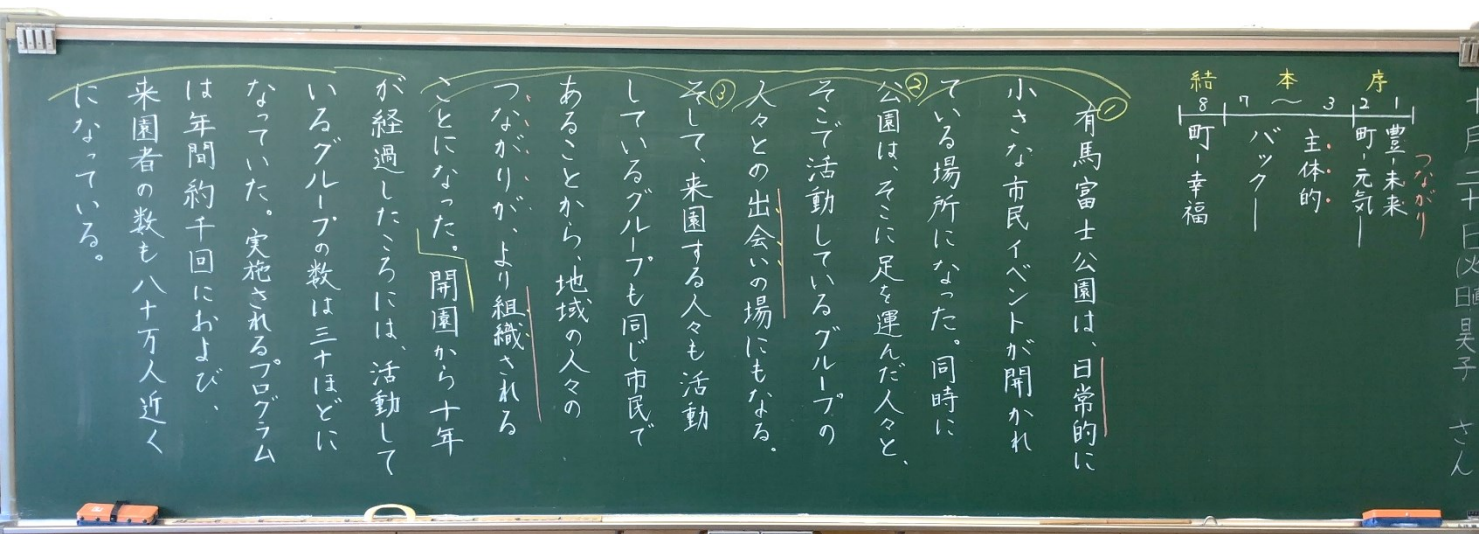 十月二十日火曜
昊子 さん
序 本 結
1 2 3 〜 7 8
つながり
豊-未来
町-元気-
主体的
バック-
町-幸福
①
有馬富士公園は、日常的に
小さな市民イベントが開かれ
ている場所になった。同時に
②
公園は、そこに足を運んだ人々と、
そこで活動しているグループの
人々との出会いの場にもなる。
③
そして、来園する人々も活動
しているグループも同じ市民で
あることから、地域の人々の
つながりが、より組織される
ことになった。開園から十年
が経過したころには、活動して
いるグループの数は三十ほどに
なっていた。実施されるプログラム
は年間約千回におよび、
来園者の数も八十万人近く
になっている。